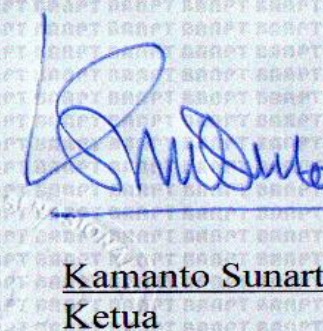 Kamanto Sunart
Ketua